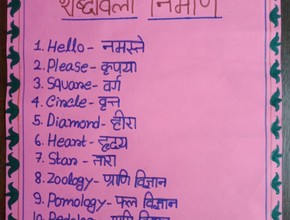 शब्दावली निर्माण
1. Hello - नमस्ते
2. Please - कृपया
3. SQuare - वर्ग
4. Circle - वृत्त
5. Diamond - हीरा
6. Heart - हृदय
7. Star - तारा
8. Zoology - प्राणि विज्ञान
9. Pomology - फल विज्ञान
10. विज्ञान